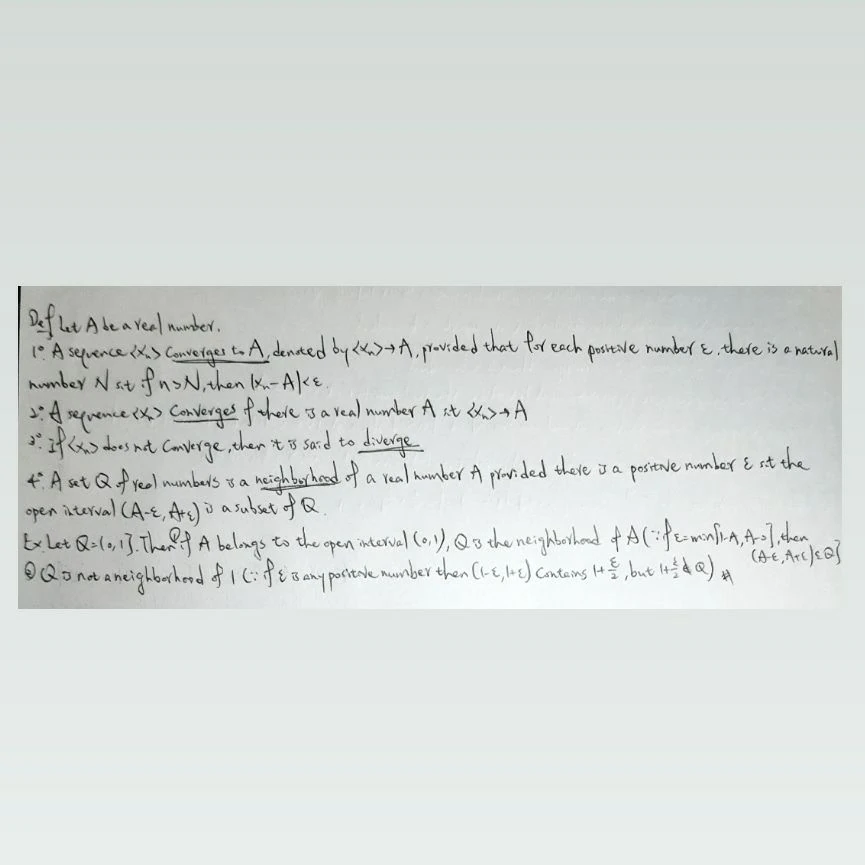 Def Let A be a real number.
1° A sequence <Xn> Converges to A, denoted by <Xn>→A, provided that for each positive number ε, there is a natural
number N s.t if n>N, then |Xn-A|<ε.
2° A sequence <Xn> Converges if there is a real number A s.t <Xn>→A
3° If <Xn> does not Converge, then it is said to diverge
4° A set Q of real numbers is a neighborhood of a real number A provided there is a positive number ε s.t the
open interval (A-ε, A+ε) is a subset of Q.
Ex. Let Q=(0,1]. Then ① if A belongs to the open interval (0,1), Q is the neighborhood of A (∵ if ε=min{1-A, A-0}, then
(A-ε, A+ε)⊆Q)
② Q is not a neighborhood of 1 (∵ if ε is any positive number then (1-ε, 1+ε) Contains 1+ε/2, but 1+ε/2 ∉ Q) #